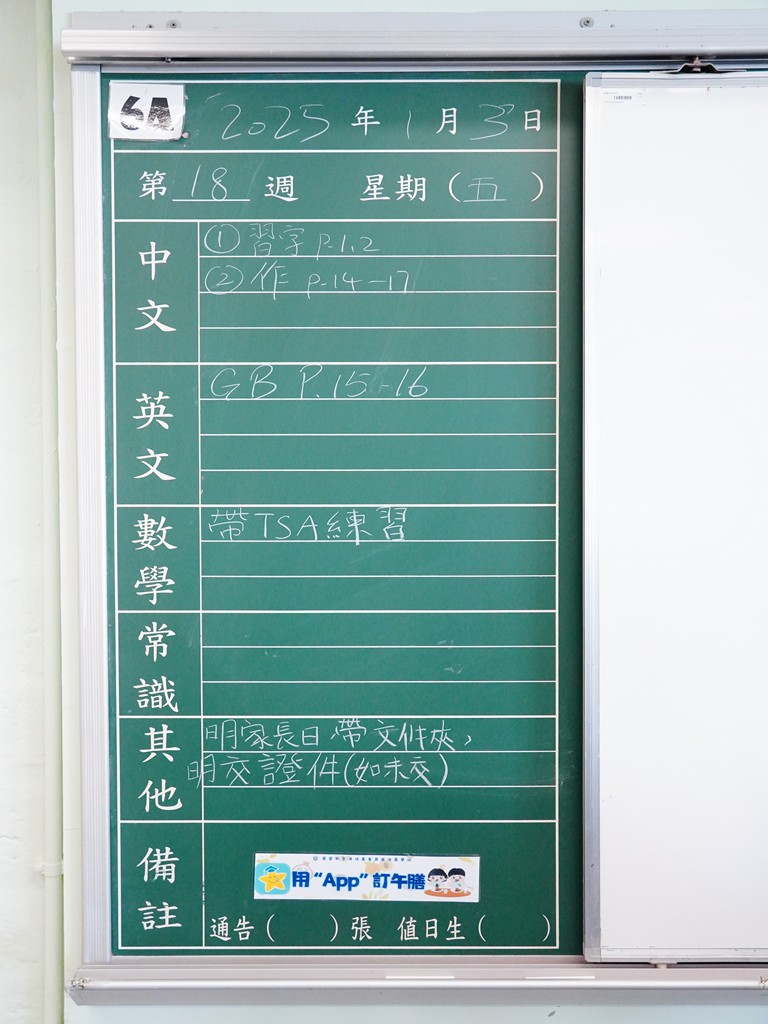 6A 2025年1月3日
第18週 星期(五)
中文
①習字 P.1,2
②作 P.14-17
英文
GB P.15-16
數學
帶TSA練習
常識
其他
明家長日,帶文件夾,
明交證件(如未交)
備註
用“App”訂午膳
通告( )張 值日生( )